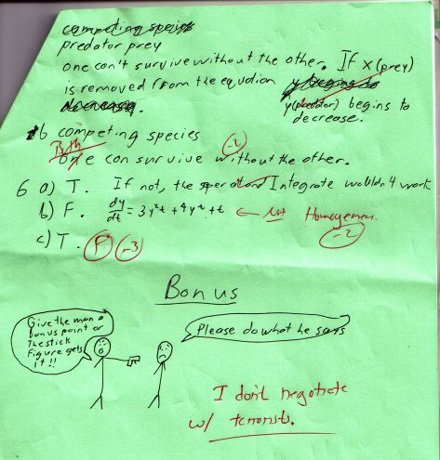 competing species
predator prey
one can't survive without the other. If x(prey)
is removed from the equation y begins to
decrease. y(predator) begins to
decrease.
1b competing species
Both -2
One can survive without the other.
6 a) T. If not, the seperate and Integrate wouldn't work
b) F. dy/dt = 3y²t + 9y²t + t ← Not Homogeneous.
-2
c) T. F -3
Bonus
Give the man a
bonus point or
The stick
Figure gets
it!!
Please do what he says
I don't negotiate
w/ terrorists.